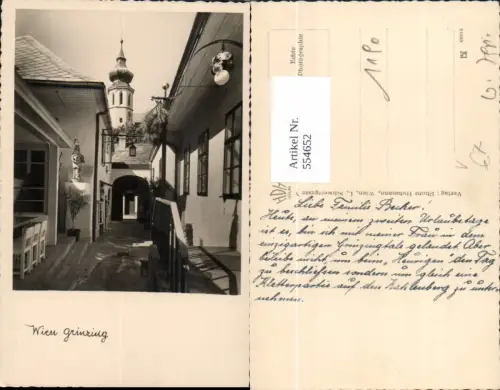 Wien Grinzing
Echte
Photographie
1190
Artikel Nr.
554652
Verlag: Photo Hofmann, Wien, I., Schwertgasse
Liebe Familie Becher!
Heute, an meinem zweiten Urlaubstage
ist es, bin ich mit meiner Frau in dem
einzigartigen Grinzingtale gelandet. Aber
beileibe nicht, um beim, Heurigen den Tag
zu beschliessen sondern um gleich eine
Kletterpartie auf den Kahlenberg zu unter
nehmen.